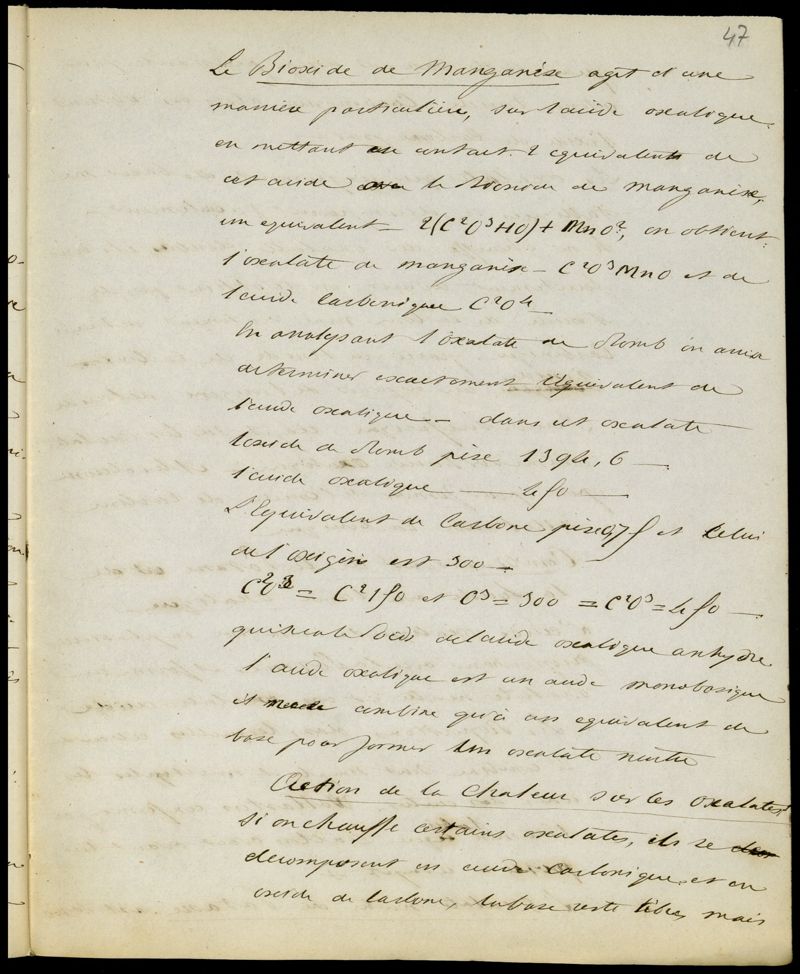 47
Le Bioxide de Manganèse agit d'une
manière particulière, sur l'acide oxalique.
en mettant en contact 2 equivalents de
cet acide avec le bioxide de manganèse,
un equivalent – 2(C²O³HO) + MnO², on obtient:
l'oxalate de manganèse – C²O³MnO et de
l'acide carbonique C²O⁴ –
En analysant l'oxalate de Plomb on arrive
determiner exactement l'équivalent de
l'acide oxalique – dans cet oxalate
l'oxide de Plomb pèse 1394,6 –
l'acide oxalique – 450 –
L'Equivalent de Carbone pèse 75 et celui
de l'oxigène est 300 –
C²O³ = C²150 et O³ = 300 = C²O³ = 450 –
qui sera le Poids de l'acide oxalique anhydre
l'acide oxalique est un acide monobasique
il combine qu'à un equivalent de
base pour former un oxalate neutre
Action de la Chaleur sur les oxalates
si on chauffe certains oxalates, ils se
decomposent en acide carbonique, et en
oxide de carbone, la base reste libre, mais